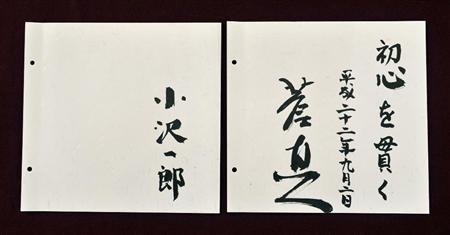 初心を貫く
平成二十二年九月二日
菅直人
小沢一郎